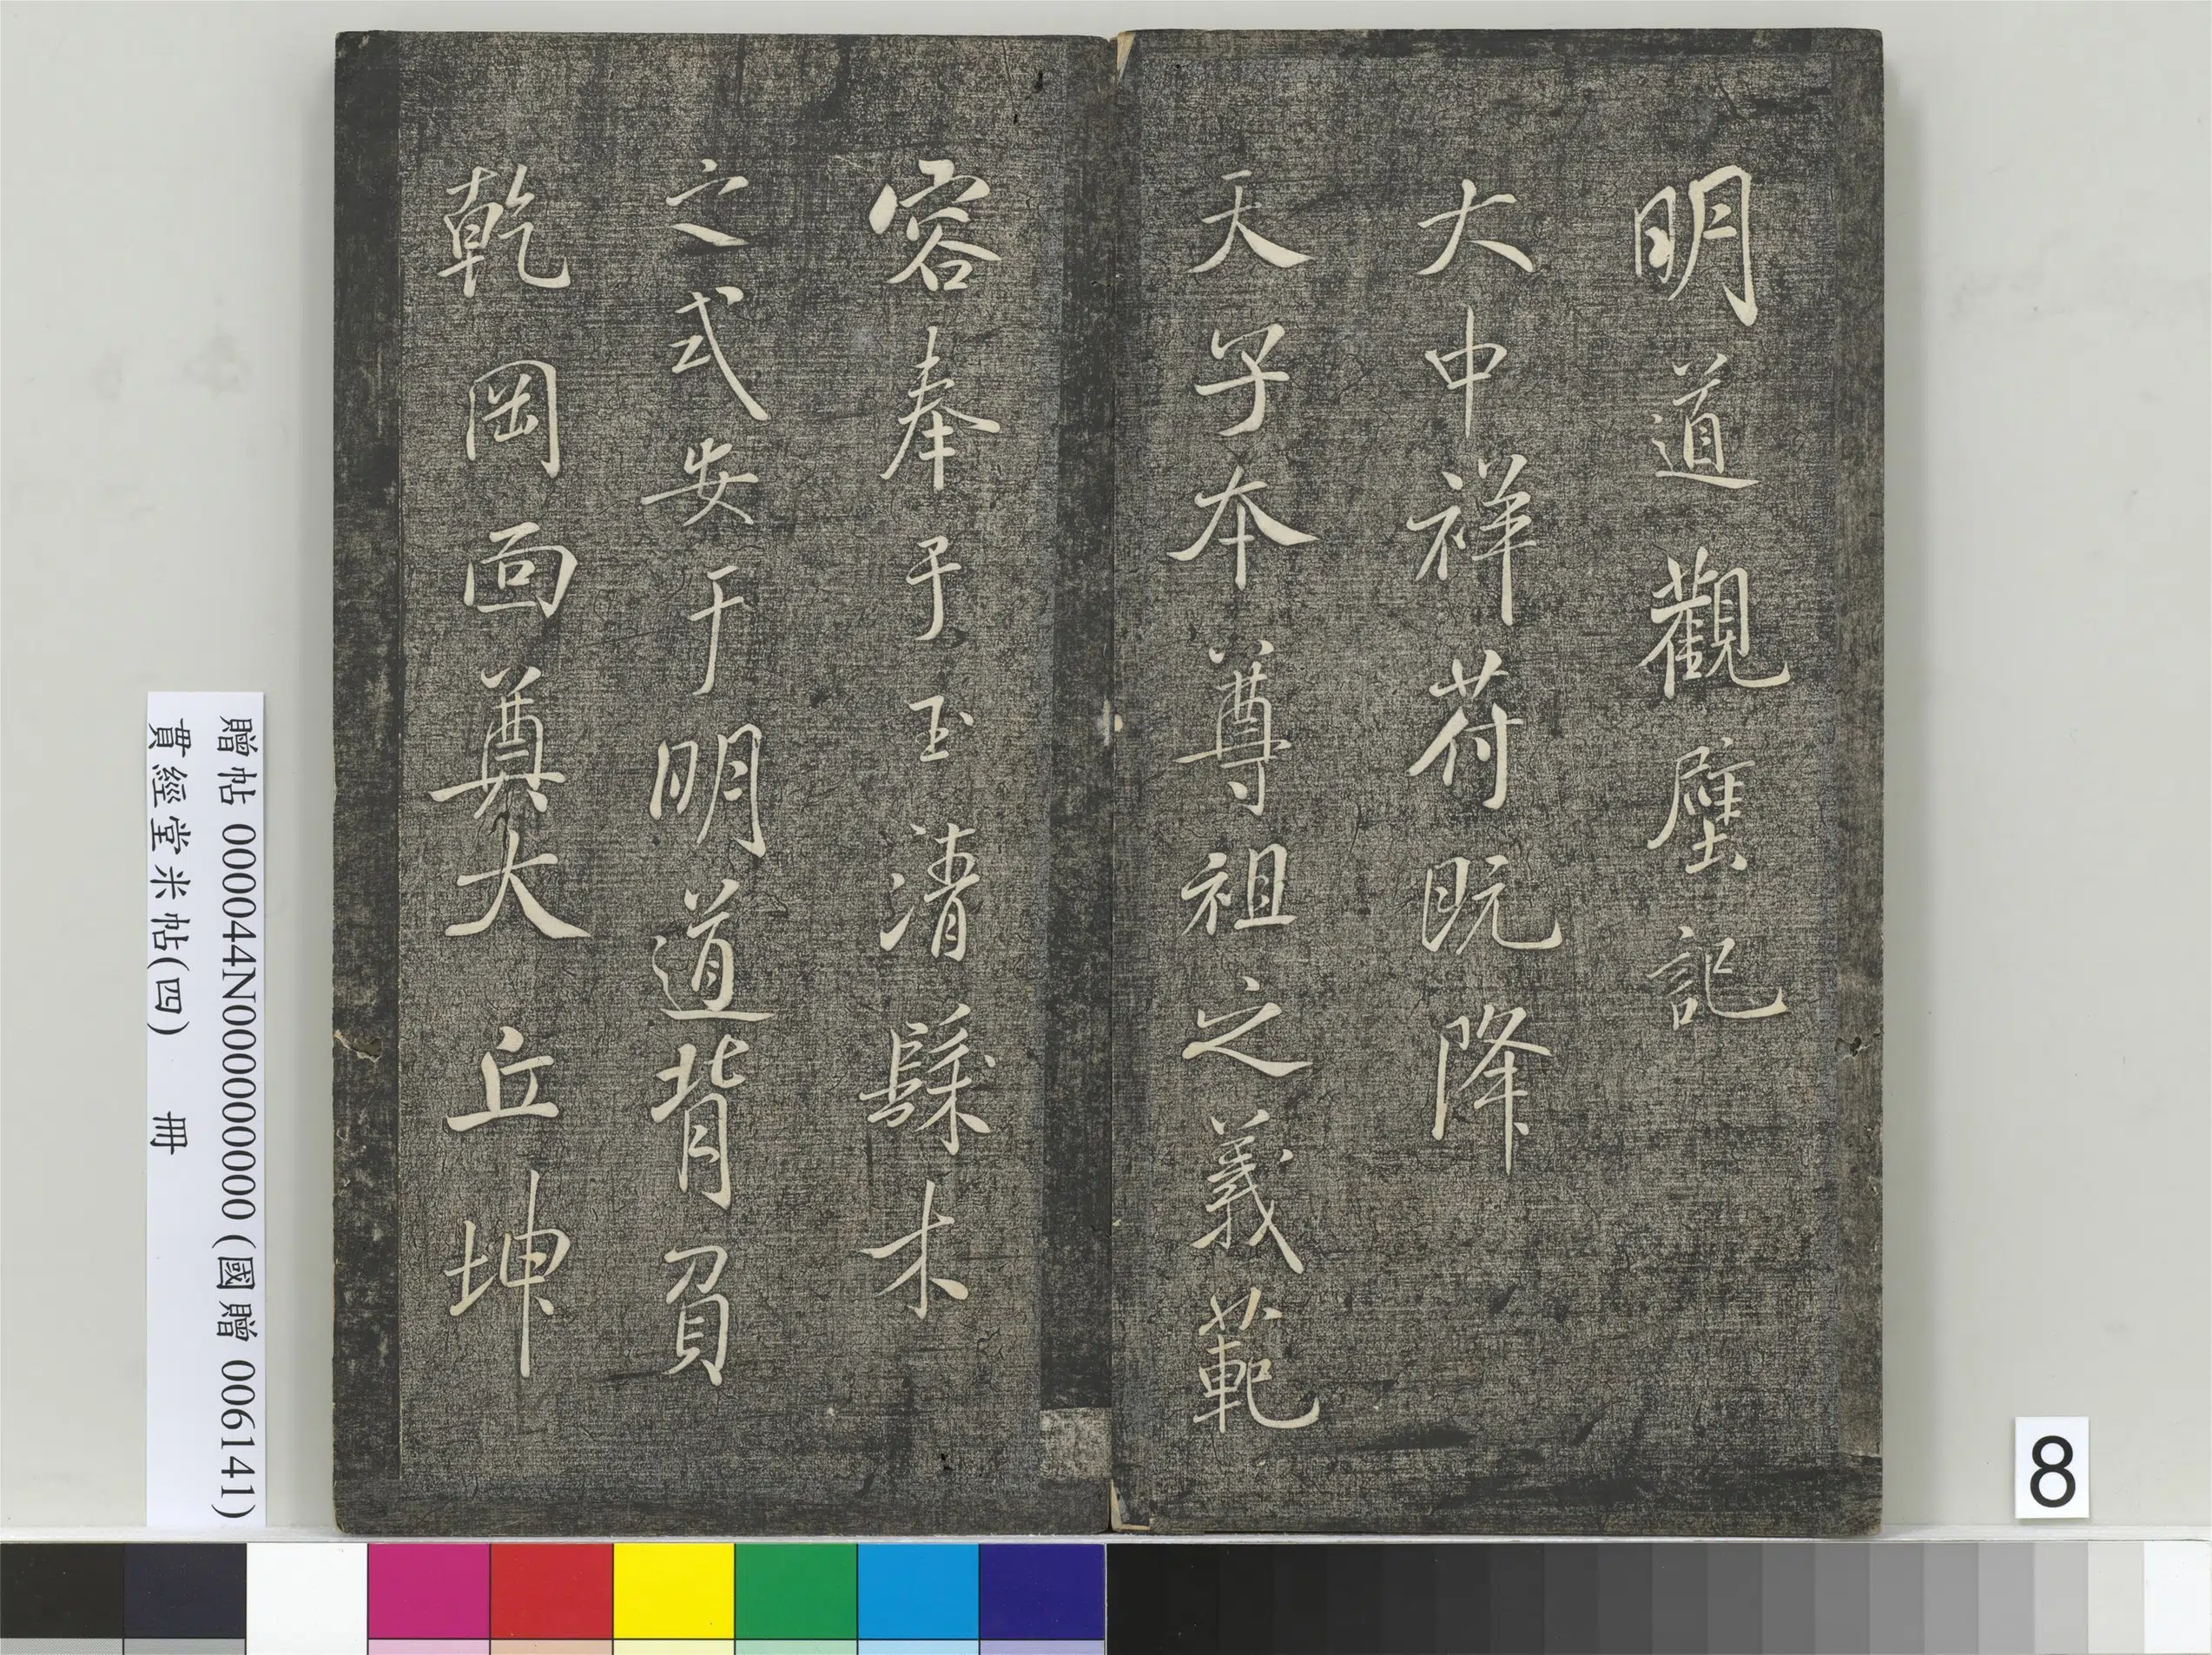 明道觀壁記
大中祥苻既降
天子本尊祖之義範
容奉于玉清繇木
之式安于明道背負
乾岡面奠大丘坤
贈帖 000044N000000000 (國贈 006141)
貫經堂米帖(四) 冊
8